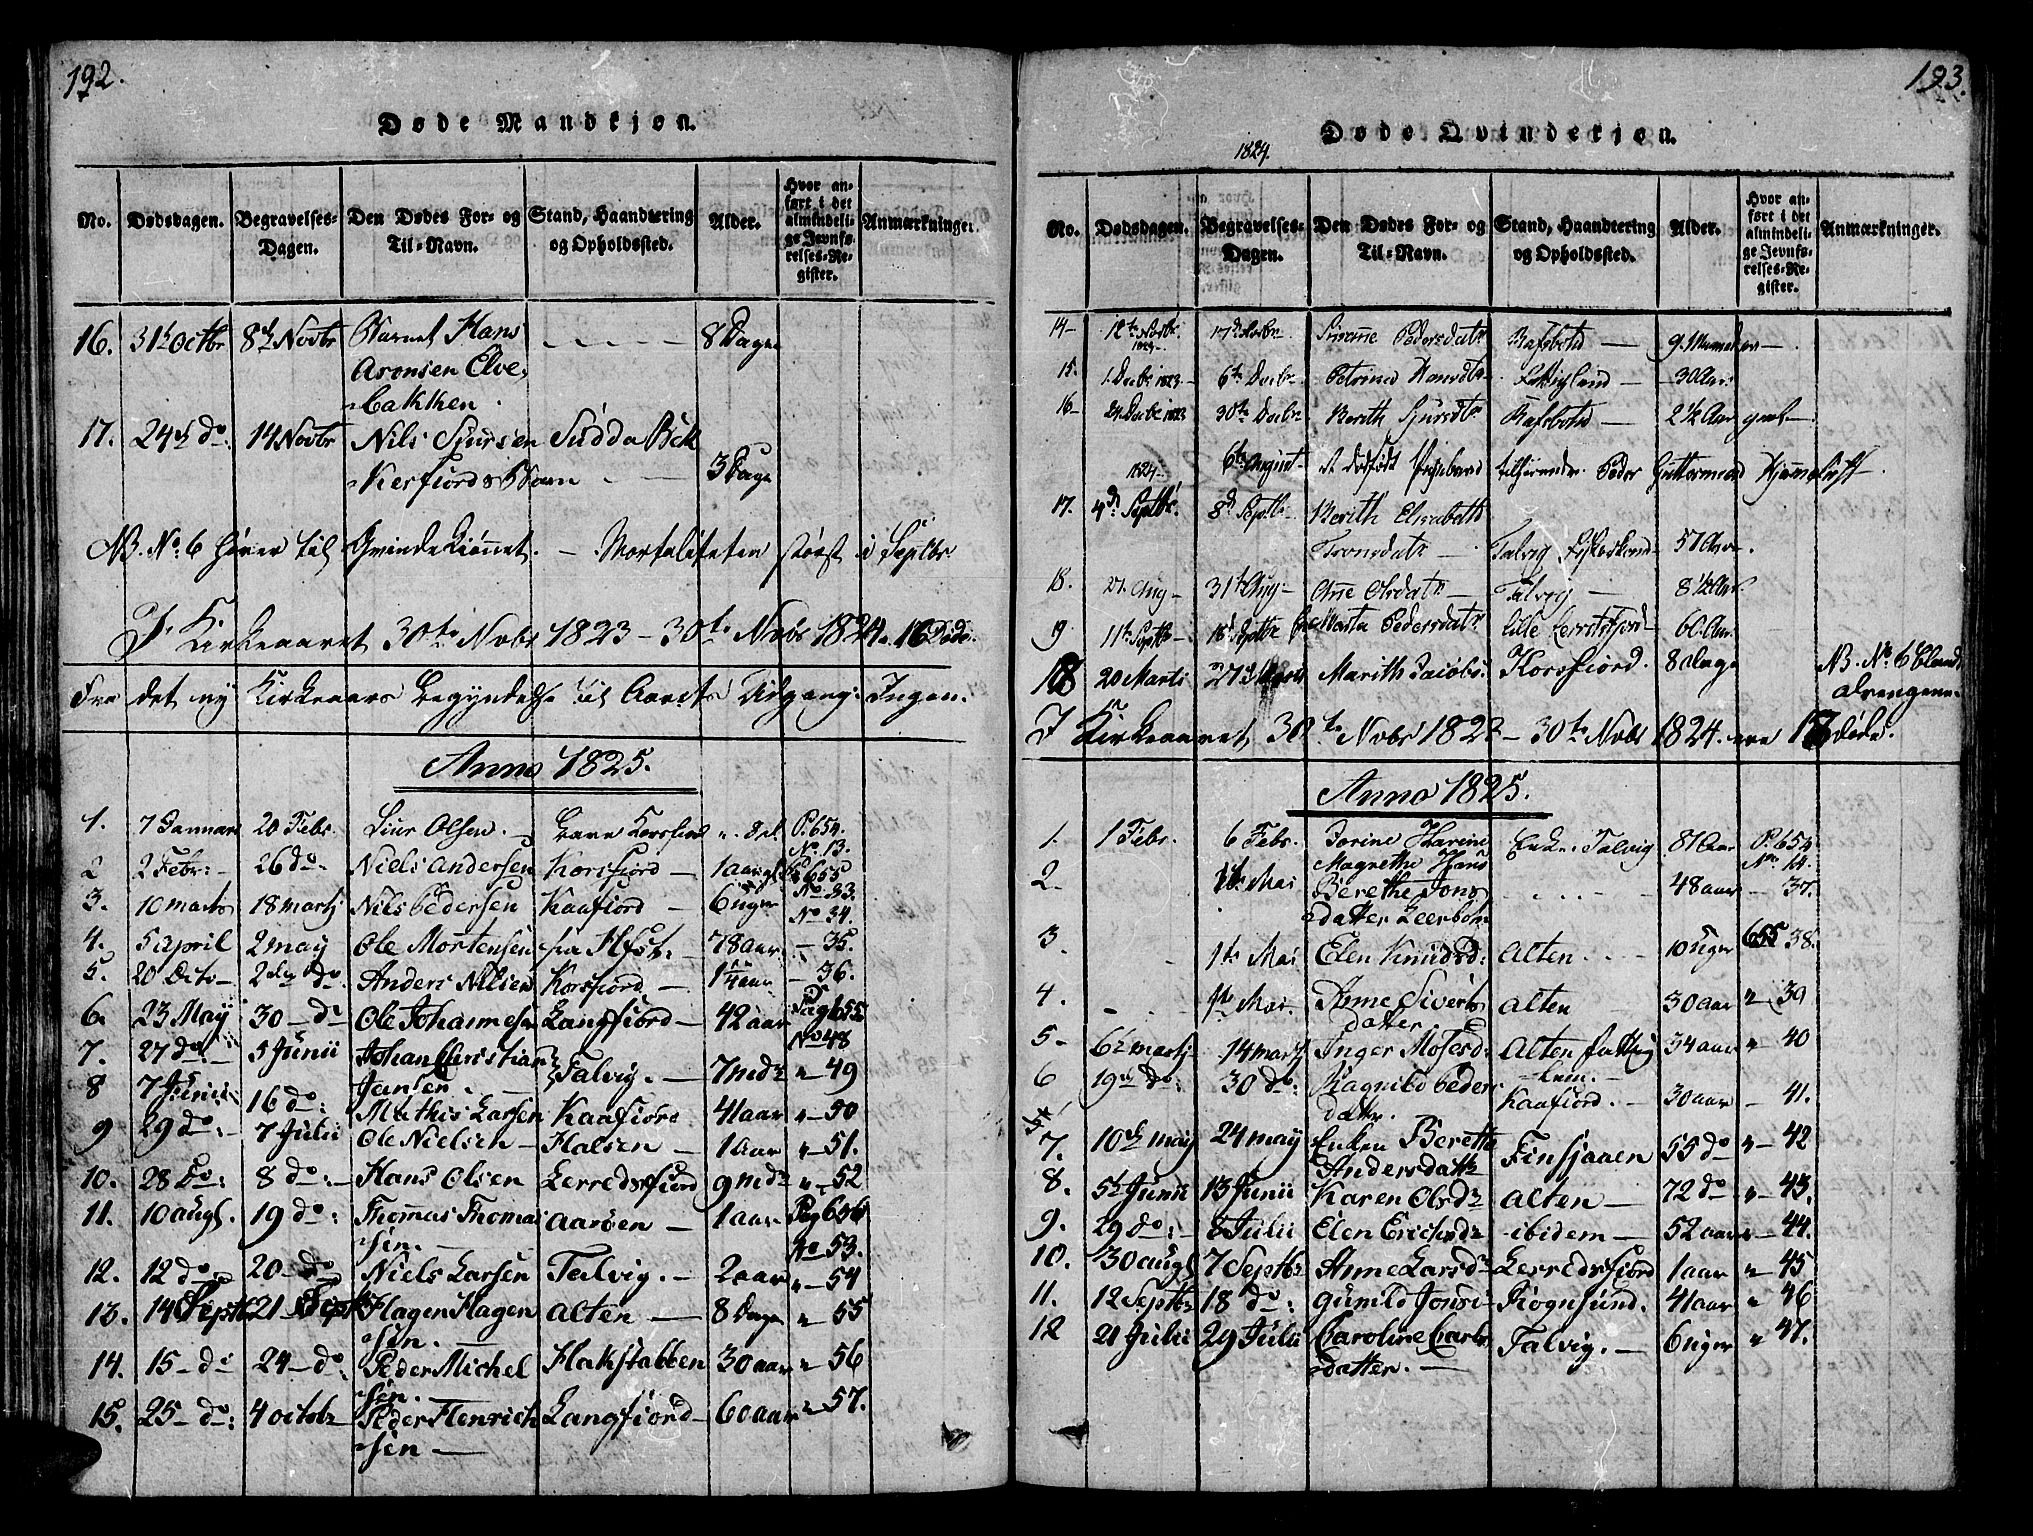 192.
Døde Mandkjøn.
No. Dødsdagen. Begravelses-Dagen. Den Dødes For- og Til-Navn. Stand, Haandtering og Opholdssted. Alder. Hvor anført i det almindelige Jevnførelses-Register. Anmærkninger.
16. 31t Octbr 8de Novbr Barnet Hans 8 Dage
Aronsen Elve-
bakken.
17. 24de do. 14 Novbr Nils Sjursen
Kerfiords Barn 3 Dage
NB. No. 6 hører til Qvindekiønnet. – Mortaliteten størst i Septbr
I Kirkeaaret 30te Novbr 1823 – 30te Novbr 1824. 16 Døde.
Fra det ny Kirkeaars Begyndelse til Aarets Udgang: Ingen.
Anno 1825.
1. 7 Januari 20 Febr. Siur Olsen. P. 654.
No. 13.
2 2 Febr: 26 do. Niels Andersen Korsfiord P 655
No. 33.
3. 10 marts 18 martj Nils Pedersen Kaafiord 6 uger No 34.
4. 5 april 2 may Ole Mortensen 78 aar 35.
5. 20 Octo 2den do. Anders Nilsen Korsfiord 1¼ aar 36.
6. 23 May 30 do Ole Johannesen Langfiord 42 aar Pag 655
No 48
7. 27 do. 5 Junii Johan Christian
Jansen. Talvig. 7 mdr 49
8 7 Junii 16 do: Mathis Larsen Kaafiord 41 aar 50
9 29 do: 7 Julii Ole Nielsen Halsen 1 aar 51.
10. 28 Do: 8 do: Hans Olsen Lerredsfiord 9 mdr 52
11. 10 augl. 19 do: Thommas Thomas-
sen. Aarøen 1 aar Pag 656
No 53.
12. 12 do 20 do Niels Larsen Talvig. 2 aar 54
13. 14 Septbr 21 Septbr Hagen Hagen-
sen. Alten 8 Dage 55
14. 15 do 24 do Peder Michel-
sen. Hakstabben 30 aar 56
15. 25 do: 4 octobr Peder Henrich-
sen Langfiord 60 aar 57.
193.
Døde Qvindekjøn.
1824.
No. Dødsdagen. Begravelses-Dagen. Den Dødes For- og Til-Navn. Stand, Haandtering og Opholdssted. Alder. Hvor anført i det almindelige Jevnførelses-Register. Anmærkninger.
14 12te Novbr 1823 17de Novbr Simme Pedersdatr Rafsbotn 9 Maaneder
15. 1 Decbr 1823 6te Decbr Petrine Hansdtr 30 Aar
16 24 Decbr 1823 30te Decbr Berith Sjursdtr Rafsbotn 2½ Aar gml
1824. 6te August et dødfødt Pigebarn tilhørende Peder Guttormsen
17. 4de Septbr. 8de Septbr Berith Elisabeth
Tronsdatr Talvig 57 Aar.
18. 27. Aug 31te Aug Ane Olsdatr Talvig 8½ Aar.
19 11te Septbr 18de Septbr Marta Pedersdatr lille Lerretsfjord 60 Aar.
18 20 Marti 27de Marit Jacobs. Korsfiord. 8 dage NB. No. 6 blandt
drengene.
I Kirkeaaret 30te Novbr 1823 – 30te Novbr 1824. ere 18 døde.
Anno 1825.
1. 1 Febr. 6 Febr. Jorine Karine
Magrethe Hans Enke. Talvig 81 aar P. 654
No. 14.
2. 1te Mai Berethe Jons-
datter Leerbotn 48 aar 37.
3. 1te Mai Elen Knudsd. Alten 10 uger 655 38.
4. 1te Mai. Anne Siverts-
datter Alten 30 aar 39
5. 6te martj 14 martj Inger Mosesd: Alten fattig
lem. 34 aar 40
6 19de do: 30 do: Ragnild Peders-
datr. Kaafiord. 30 aar 41.
7. 10de may 24 may Enken Berette
Andersdattr Finsjaaen 55 do 42
8. 5te Junii 13 Junii Karen Olsdr Alten 72 do 43.
9. 29 do: 8 Julii Elen Erichsdr ibidem 52 aar 44.
10. 30 augl 7 Septbr Anne Larsdr Lerredsfiord 1 aar 45
11. 12 Septbr 18 do: Gunild Jonsd Rognsund. 41 aar 46
12 21 Julii 29 Julii Caroline Carls-
datter. Talvig. 6 uger 47.